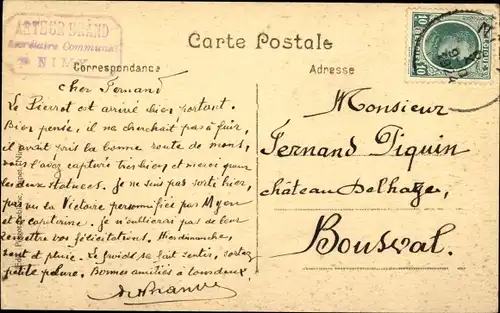 ARTHUR BRAND
Secrétaire Communal
NIMY
Carte Postale
Correspondance
Adresse
10
10
Cher Fernand
Le Pierrot est arrivé bien portant.
Bien pensé, il ne cherchait pas à fuir,
il avait pris la bonne route de mons,
vous l'avez capturé très bien et merci pour
les deux astuces. Je ne suis pas sorti hier,
pas vu la Victoire personnifiée par Myon
et le capiturine. Je n'oublierai pas de leur
remettre vos félicitations. Hier dimanche,
vent et pluie. Le froid se fait sentir, sortez
petite pelure. Bonnes amitiés à tous deux
Monsieur
Fernand Piquin
château Delhaye,
Bousval.